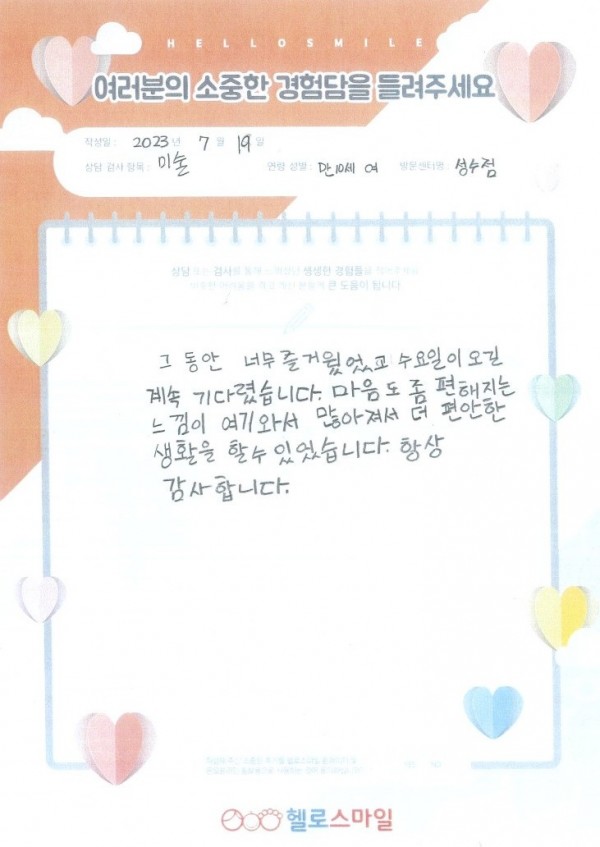 HELLOSMILE
여러분의 소중한 경험담을 들려주세요
작성일 : 2023년 7월 19일
상담 검사 항목 : 미술 연령 성별 : 만10세 여 방문센터명 : 성수점
상담 또는 검사를 통해 생생한 경험들을
큰 도움이 됩니다
그 동안 너무 즐거웠었고 수요일이 오길
계속 기다렸습니다. 마음도 좀 편해지는
느낌이 여기와서 많아져서 더 편안한
생활을 할수 있었습니다. 항상
감사합니다.
헬로스마일